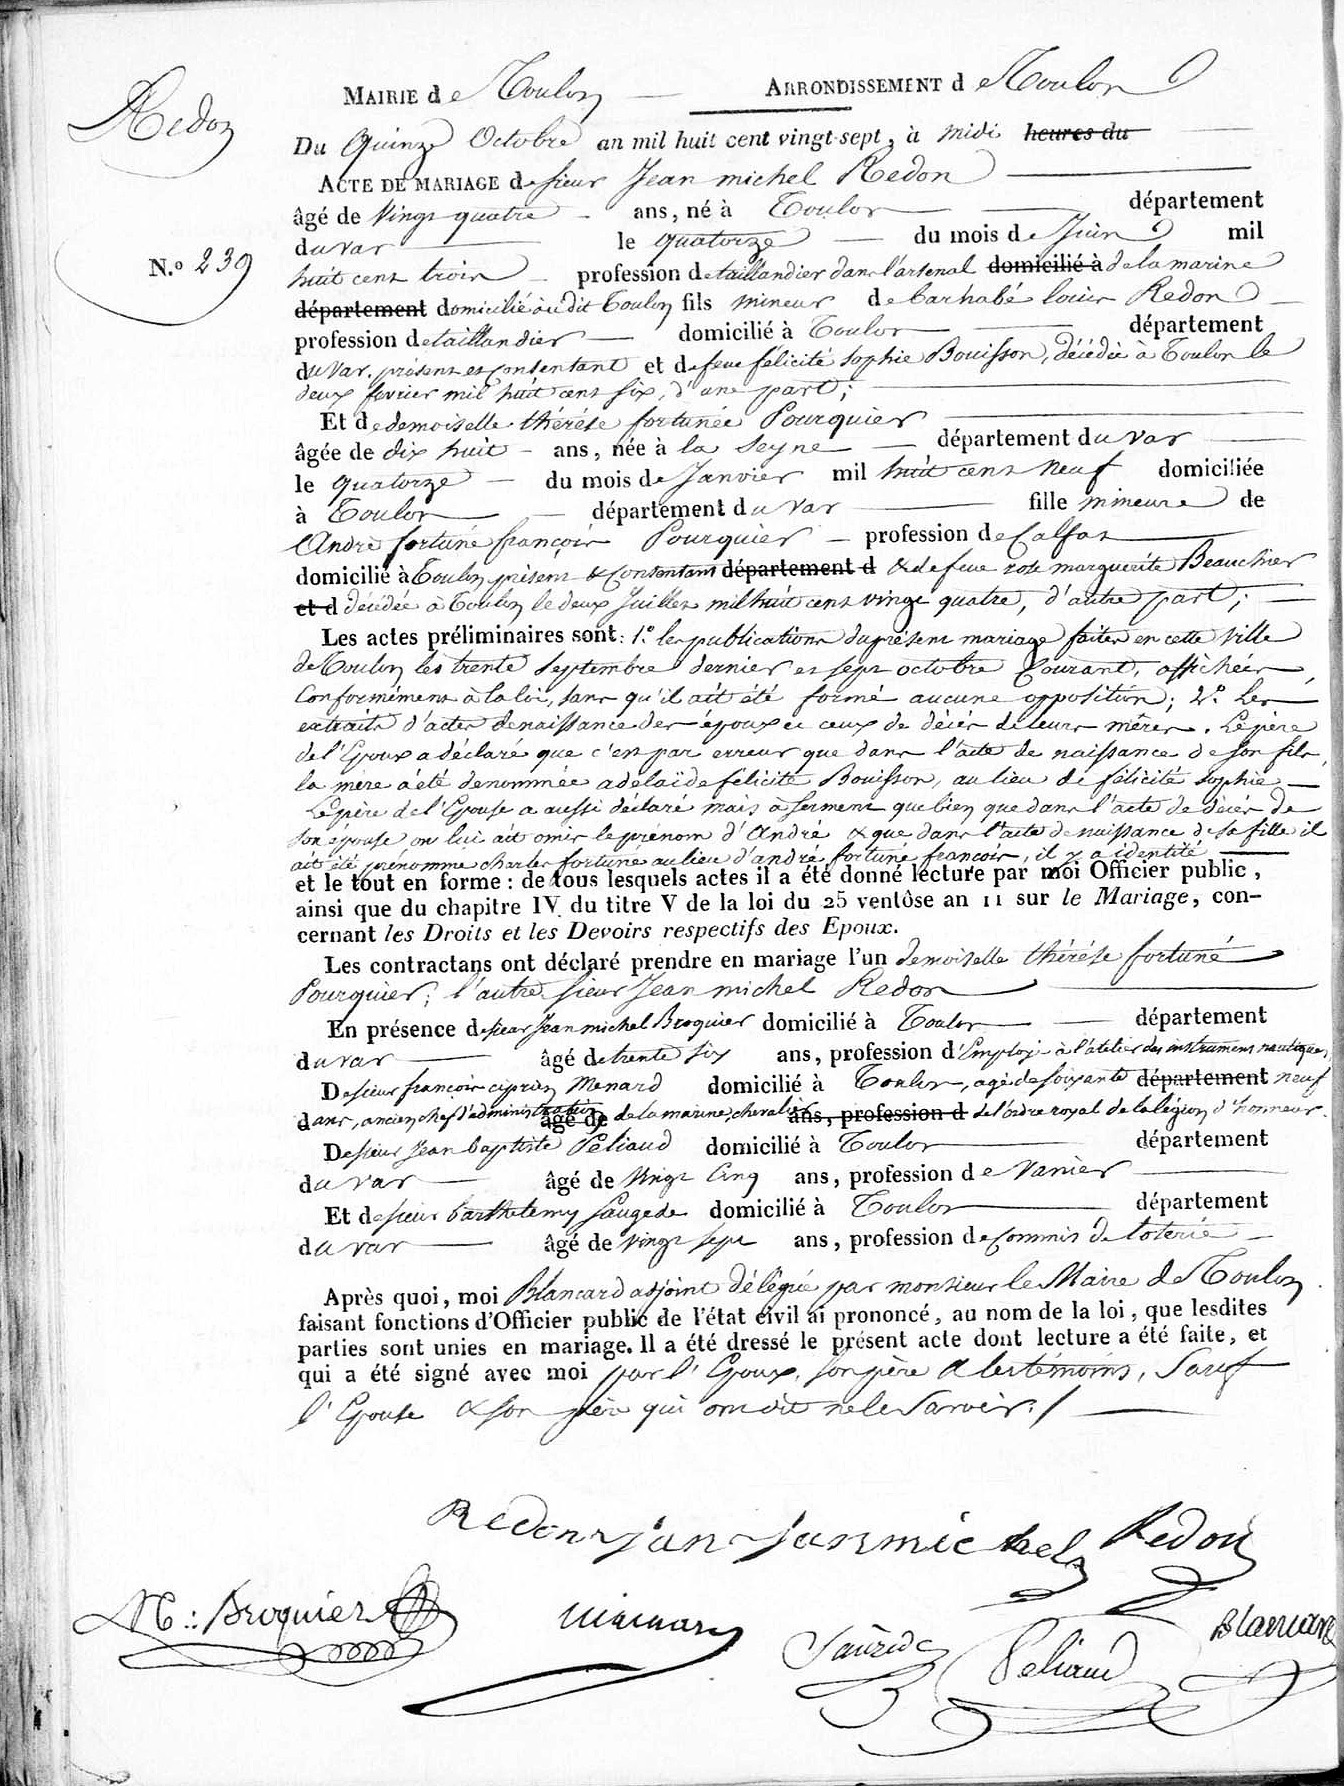 Redon
N.o 239
MAIRIE de Toulon ARRONDISSEMENT de Toulon
Du Quinze Octobre an mil huit cent vingt-sept, à midi heures du
ACTE DE MARIAGE de sieur Jean michel Redon
âgé de vingt quatre ans, né à Toulon département
du var le quatorze du mois de Juin mil
huit cent trois profession de taillandier dans l'arsenal domicilié à de la marine
département domicilié au dit Toulon fils mineur de barnabé louis Redon
profession de taillandier domicilié à Toulon département
du Var, présent et consentant et de feue félicité sophie Bouisson, décédée à Toulon le
deux fevrier mil huit cent six, d'une part;
Et de demoiselle thérése fortunée Pourquier
âgée de dix huit ans, née à la Seyne département du var
le quatorze du mois de Janvier mil huit cent neuf domiciliée
à Toulon département du var fille mineure de
André fortuné françois Pourquier profession de Calfat
domicilié à Toulon présent & Consentant département d & de feue rose marguerite Beauchier
et d décédée à Toulon le deux Juillet mil huit cent vingt quatre, d'autre part;
Les actes préliminaires sont: 1.o les publications du présent mariage faites en cette ville
de Toulon les trente Septembre dernier et sept octobre Courant, affichées,
Conformément à la loi, sans qu'il ait été formé aucune opposition; 2.o Les
extraits d'actes de naissance des époux et ceux de décés de leurs mères. Le père
de l'Epoux a déclaré que c'est par erreur que dans l'acte de naissance de son fils,
la mère a été denommée adelaïde félicité Bouisson, au lieu de félicité sophie
Le père de l'Epouse a aussi déclaré mais à serment que bien que dans l'acte de décés de
son épouse on lui ait omis le prénom d'André & que dans l'acte de naissance de sa fille il
ait été prénommé charles fortuné au lieu d'andré fortuné françois, il y a identité
et le tout en forme: de tous lesquels actes il a été donné lecture par moi Officier public,
ainsi que du chapitre IV du titre V de la loi du 25 ventôse an 11 sur le Mariage, con-
cernant les Droits et les Devoirs respectifs des Epoux.
Les contractans ont déclaré prendre en mariage l'un demoiselle thérése fortuné
Pourquier; l'autre sieur Jean michel Redon
En présence de sieur Jean michel Broquier domicilié à Toulon département
du var âgé de trente six ans, profession d'Employé à l'atelier des instrumens nautiques,
De sieur françois ciprien Menard domicilié à Toulon, agé de soixante département neuf
d ans, ancien chef d'administration âgé de de la marine, chevalier ans, profession d de l'ordre royal de la légion d'honneur.
De sieur Jean baptiste Peliaud domicilié à Toulon département
du var âgé de vingt cinq ans, profession de Vanier
Et de sieur barthelemy Saugede domicilié à Toulon département
du var âgé de vingt sept ans, profession de Commis de loterie
Après quoi, moi Blancard adjoint délégué par monsieur le Maire de Toulon
faisant fonctions d'Officier public de l'état civil ai prononcé, au nom de la loi, que lesdites
parties sont unies en mariage. Il a été dressé le présent acte dont lecture a été faite, et
qui a été signé avec moi par l'Epoux, son père & les témoins, Sauf
l'Epouse & son père qui ont dit ne le Savoir./
Redon jan janmichel Redon
M.: Broquier
Blancard
Peliaud